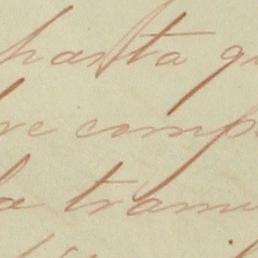 hasta qu
re comp
la tram